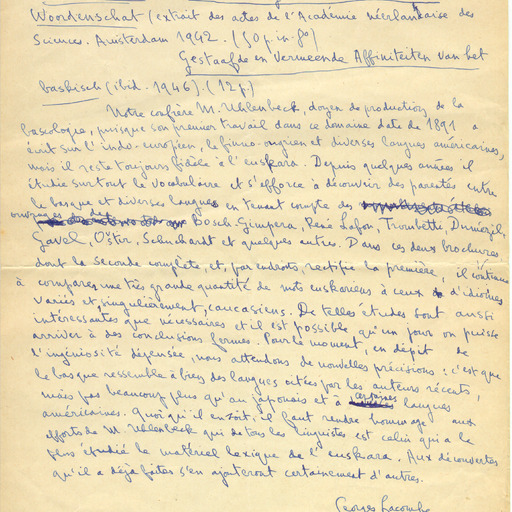 Woordenschat (extrait des actes de l'Académie néerlandaise des
Sciences. Amsterdam 1942. (50 p. in-8º)
Gestaafde en Vermeende Affiniteiten van het
baskisch (ibid. 1946). (12 p.)
Notre confrère M. Uhlenbeck, doyen de production de la
bascologie, puisque son premier travail dans ce domaine date de 1891 a
écrit sur l'indo-européen, le finno-ougrien et diverses langues américaines,
mais il reste toujours fidèle à l'euskara. Depuis quelques années il
étudie surtout le vocabulaire et s'efforce à découvrir des parentés entre
le basque et diverses langues en tenant compte des
ouvrages de Bosch-Gimpera, René Lafon, Trombetti, Dumézil,
Gavel, Oštir, Schuchardt et quelques autres. Dans ces deux brochures
dont la seconde complète, et, par endroits, rectifie la première, il continue
à comparer une très grande quantité de mots euskariens à ceux d'idiomes
variés et, singulièrement, caucasiens. De telles études sont aussi
intéressantes que nécessaires et il est possible qu'un jour on puisse
arriver à des conclusions fermes. Pour le moment, en dépit de
l'ingéniosité dépensée, nous attendons de nouvelles précisions : c'est que
le basque ressemble à bien des langues citées par les auteurs récents,
mais pas beaucoup plus qu'au japonais et à certaines langues
américaines. Quoi qu'il en soit, il faut rendre hommage aux
efforts de M. Uhlenbeck qui de tous les linguistes est celui qui a le
plus étudié le matériel lexique de l'euskara. Aux découvertes
qu'il a déjà faites s'en ajouteront certainement d'autres.
Georges Lacombe